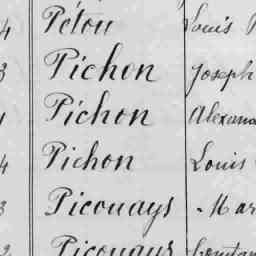 4 Pétou Louis
3 Pichon Joseph
1 Pichon Alexand
4 Pichon Louis
3 Picouays Mar
2 Picouays